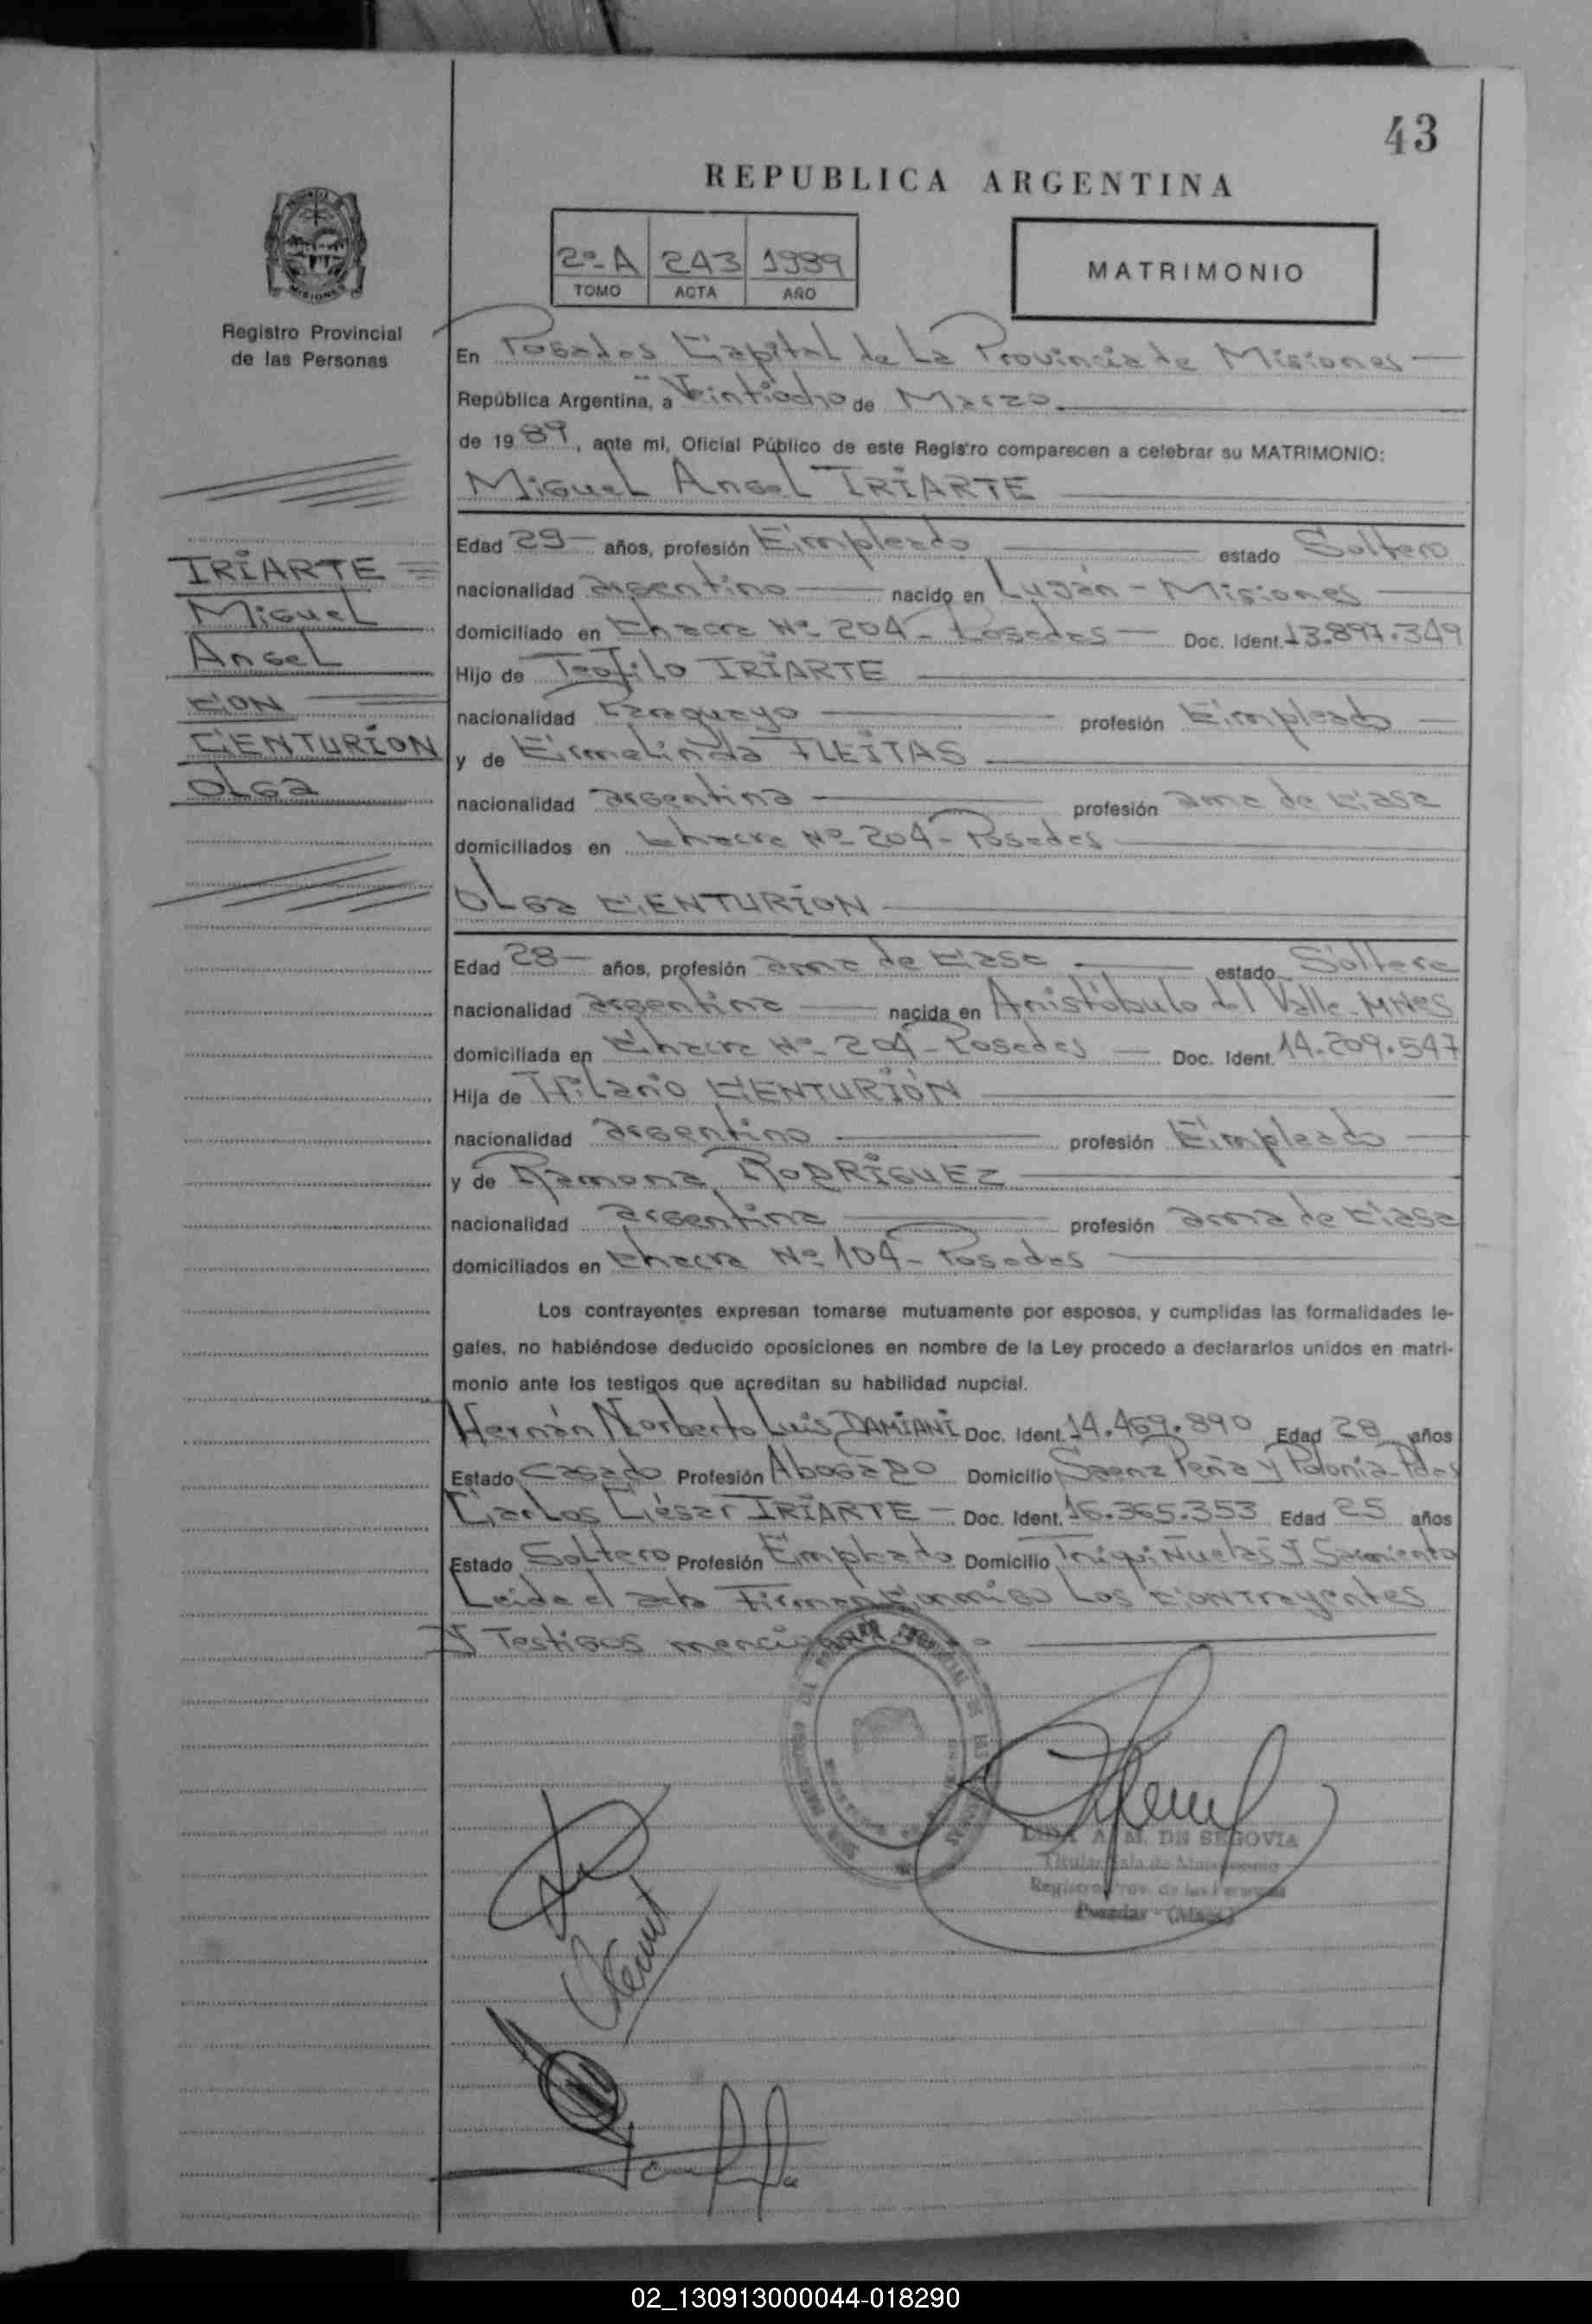 43
REPUBLICA ARGENTINA
2º-A 243 1989
TOMO ACTA AÑO
MATRIMONIO
Registro Provincial
de las Personas
En Posadas Capital de La Provincia de Misiones
República Argentina, a Veintiocho de Marzo
de 1989, ante mi, Oficial Público de este Registro comparecen a celebrar su MATRIMONIO:
Miguel Angel IRIARTE
Edad 29 años, profesión Empleado estado Soltero
nacionalidad argentino nacido en Luján - Misiones
domiciliado en Chacra Nº 204 - Posadas Doc. Ident. 13.897.349
Hijo de Teofilo IRIARTE
nacionalidad Paraguayo profesión Empleado
y de Ermelinda FLEITAS
nacionalidad argentina profesión ama de Casa
domiciliados en Chacra Nº 204 - Posadas
IRIARTE
Miguel
Angel
CON
CENTURION
OLga
OLga CENTURION
Edad 28 años, profesión ama de Casa estado Soltera
nacionalidad argentina nacida en Aristóbulo del Valle - MNES
domiciliada en Chacra Nº 204 - Posadas Doc. Ident. 14.209.547
Hija de Hilario CENTURIÓN
nacionalidad argentino profesión Empleado
y de Ramona RODRIGUEZ
nacionalidad argentina profesión ama de Casa
domiciliados en Chacra Nº 104 - Posadas
Los contrayentes expresan tomarse mutuamente por esposos, y cumplidas las formalidades le-
gales, no habiéndose deducido oposiciones en nombre de la Ley procedo a declararlos unidos en matri-
monio ante los testigos que acreditan su habilidad nupcial.
Hernán Norberto Luis DAMIANI Doc. Ident. 14.469.890 Edad 28 años
Estado Casado Profesión Abogado Domicilio Saenz Peña y Polonia Pdas
Carlos César IRIARTE - Doc. Ident. 16.365.353 Edad 25 años
Estado Soltero Profesión Empleado Domicilio Y Sarmiento
Leida el acta Firman Conmigo Los Contrayentes
Y Testigos mencionados
LIDA A. M. DE SEGOVIA
Titular Sala de Matrimonio
Registro Prov. de las Personas
Posadas - (Mnes.)
02_130913000044-018290